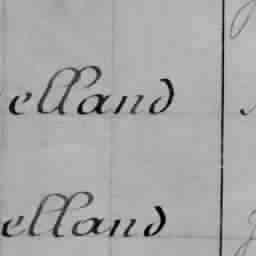 elland
elland